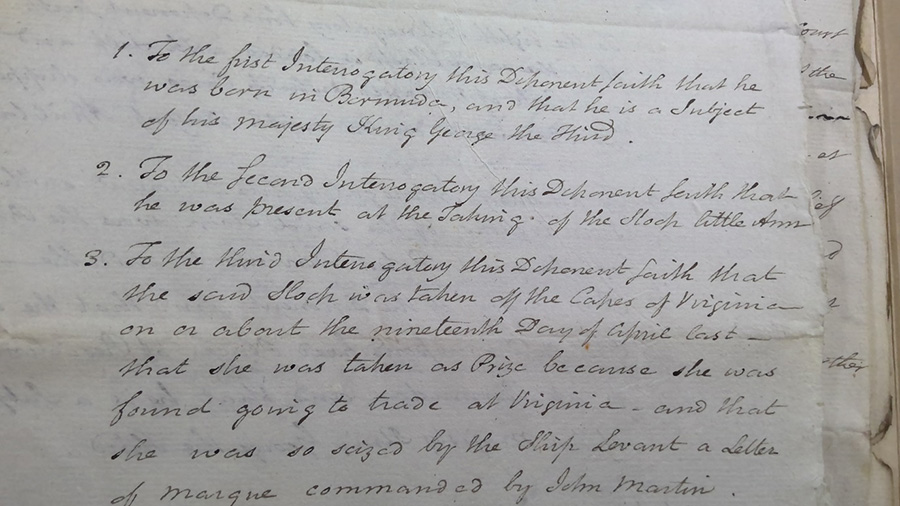 1. To the first Interrogatory this Deponent saith that he
was born in Bermuda, and that he is a Subject
of his Majesty King George the Third.
2. To the Second Interrogatory this Deponent saith that
he was present at the Taking of the Sloop little Ann
3. To the third Interrogatory this Deponent saith that
the said Sloop was taken off the Capes of Virginia
on or about the nineteenth Day of April last –
that she was taken as Prize because she was
found going to trade at Virginia – and that
she was so seized by the Ship Levant a Letter
of marque commanded by John Martin.
Court
the
at